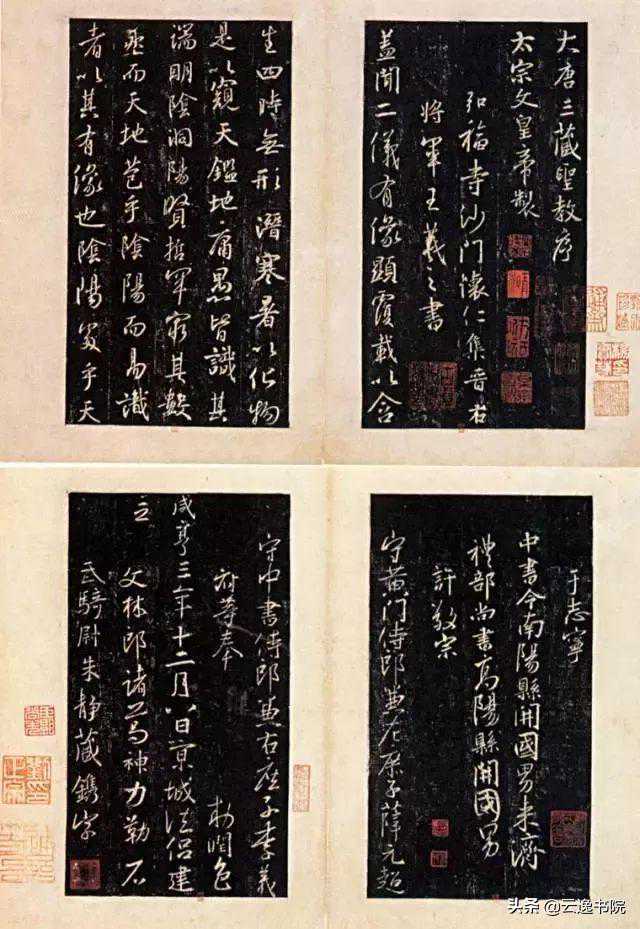 大唐三藏聖教序
太宗文皇帝製
弘福寺沙門懷仁集晉右
將軍王羲之書
蓋聞二儀有像顯覆載以含
生四時無形潛寒暑以化物
是以窺天鑑地庸愚皆識其
端明陰洞陽賢哲罕窮其數
然而天地苞乎陰陽而易識
者以其有像也陰陽處乎天
于志寧
中書令南陽縣開國男来濟
禮部尚書高陽縣開國男
許敬宗
守黃門侍郎兼左庶子薛元超
守中書侍郎兼右庶子李義
府等奉 勑潤色
咸亨三年十二月八日京城法侶建
立
文林郎諸葛神力勒石
武騎尉朱靜藏鐫字
头条 @云逸书院